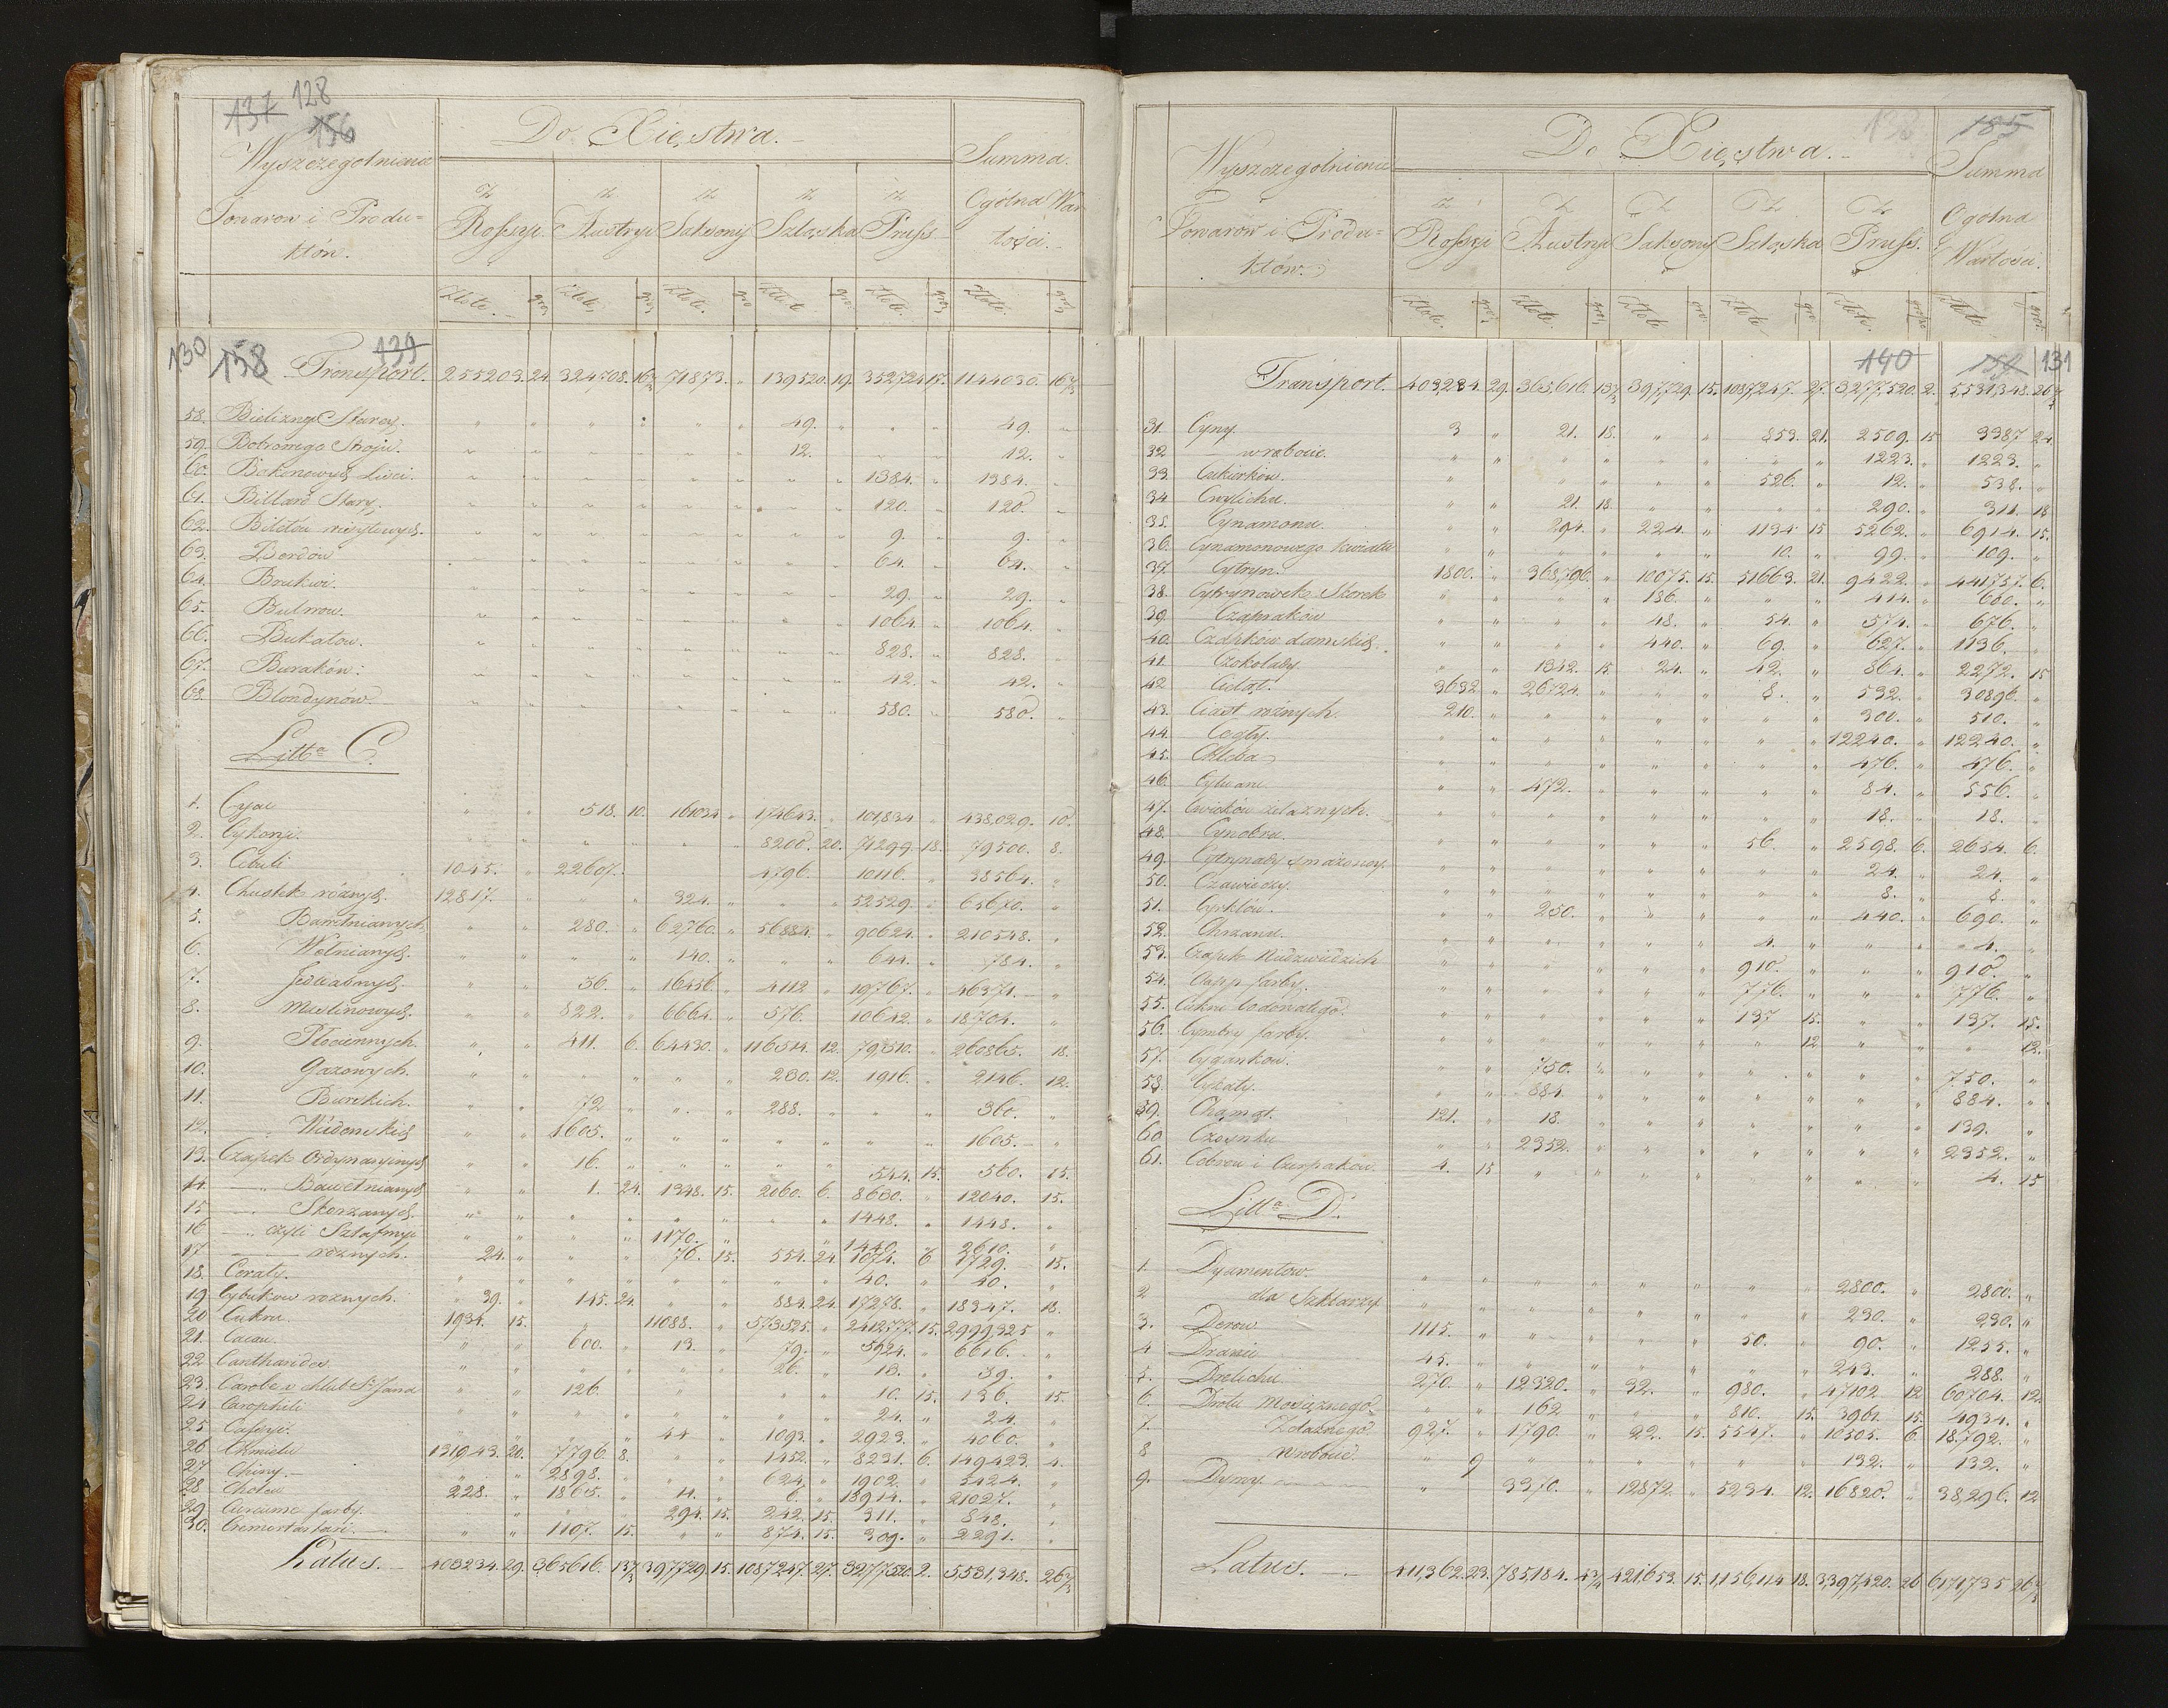 137 128
156
Wyszczegolnienie
Towarow i Produ=
któw.
Do Xięstwa.
Summa
Ogólna War
tości
z Rossyi z Austryi z Saksonij z Szląska z Pruss
Złote. gro: Złote. gro: Złote. gro: Złote. gro: Złote. gro: Złote. gro:
130 158 139
Transport. 255203. 24. 324708. 16 2/3 71873. „ 139520. 19. 352724. 17. 1144030. 16 2/3
58. Bielizny Starey. „ „ „ „ „ „ 49. „ „ „ 49. „
59. Bobrowego Stroju. „ „ „ „ „ „ 12. „ „ „ 12. „
60. Bobkowych Lisci. „ „ „ „ „ „ „ „ 1384. „ 1384. „
61. Billard Stary. „ „ „ „ „ „ „ „ 120. „ 120. „
62. Biletów wizytowych. „ „ „ „ „ „ „ „ 9. „ 9. „
63. Berdów „ „ „ „ „ „ „ „ 64. „ 64. „
64. Brukwi. „ „ „ „ „ „ „ „ 29. „ 29. „
65. Bulwow. „ „ „ „ „ „ „ „ 1064. „ 1064. „
66. Bukatow. „ „ „ „ „ „ „ „ 828. „ 828. „
67. Buraków. „ „ „ „ „ „ „ „ 42. „ 42. „
68. Blondynów. „ „ „ „ „ „ „ „ 580. „ 580. „
Litta C.
1. Cyny „ „ 518. 10. 161034. „ 174643. „ 101,834 „ 438,029. 10.
2. Cykoryi. „ „ „ „ „ „ 8200. 20. 71299. 18. 79500. 8.
3. Cebuli 1045. „ 22607. 4796. 10116. „ 38564. „
4. Chustek różnych. 12817. „ „ „ 324. „ „ „ 52529. „ 65670. „
5. „ Bawełnianych „ „ 280. „ 62760. „ 56884. „ 90624. „ 210548. „
6. Wełnianych. „ „ „ „ 140. „ „ „ 644. „ 784. „
7. Jedwabnych. „ „ 36. „ 16456. „ 4112 „ 19,767. „ 46371. „
8. Muslinowych. „ „ 822. „ 6664. „ 576. „ 10642. „ 18704. „
9. Płóciennych. „ „ 411. 6. 64430. „ 116514. 12. 79510. „ 260865. 18.
10. Gazowych. „ „ „ „ „ „ 230. 12. 1916. „ 2146. 12.
11. Burskich. „ „ 72 „ „ „ 288. „ „ „ 360. „
12. „ Wiedenskich „ „ 1605. „ „ „ „ „ „ „ 1605. „
13. Czapek Ordynaryinych „ „ 16. „ „ „ „ „ 544. 15. 560. 15.
14. „ Bawełnianych „ „ 1. 24. 1348. 15. 2060. 6. 8630. „ 12040. 15.
15 „ Skorzanych. „ „ „ „ „ „ „ „ 1448. „ 1448. „
16 „ czyli Sztafmyc „ „ „ „ 1170. „ „ 1440. „ 2610. „
17 „ różnych. 24. „ „ „ 76. 15. 554. 24. 1074. 6 1729. 15.
18. Ceraty. „ „ „ „ „ „ „ „ 40. „ 40. „
19. Cybukow roznych. „ 39. „ 145. 24. „ „ 884. 24. 17278. „ 18347. 18.
20. Cukru. 1934. 15. „ 11088. „ 573525. „ 2412777. 15. 2999325 „
21. Cacau. „ „ 600. „ 13. „ 79. „ 5924. „ 6616. „
22. Cantharides. „ „ „ „ „ „ 26. „ 13. „ 39. „
23. Carobe v. chleb St Jana „ „ 126. „ „ „ „ 10. 15. 136. 15.
24. Carophili „ „ „ „ „ „ „ „ 24. „ 24. „
25. Cassyi. „ „ „ „ 44 „ 1093. „ 2923. „ 4060. „
26. Chmielu 131943. 20. 7796. 8. „ „ 1452. „ 8231. 6. 149423. 4.
27. Chiny. „ „ 2898. „ „ „ 624. „ 1902. „ 5424. „
28. Cholew 228. „ 1865. „ 14. „ 6. „ 18914. „ 21027. „
29. Curcume farby. „ „ „ „ 294. 15. 242. 15. 311. „ 848. „
30. Cremortartari. „ „ 1107. 15. „ „ 874. 15. 309. „ 2291. „
Latus. 403234. 29. 365616. 13 2/3 397729. 15. 1087247. 27. 3277520. 2. 5,531,348. 26 2/3
138 185
Wyszczegolnienie
Towarow i Produ=
któw.
Do Xięstwa.
Summa
Ogolna
Wartosci.
z Rossyi z Austryi z Saksonij z Szląska z Pruss.
Złote. gro: Złote. gro: Złote gro: Złote gro: Złote. grosze Złote gro:
140 159 131
Transport. 403,234. 29. 365,616. 13 2/3 397,729. 15. 1087,247. 27. 3,277,520. 2. 5,531,348. 26 2/3
31. Cyny 3 „ 21. 18. „ „ 853. 21. 2509. 15 3387 24
32. „ wrobocie. „ „ „ „ „ „ „ „ 1223. „ 1223. „
33. Cukierków. „ „ „ „ „ „ 526. „ 12. „ 538. „
34. Cwylichu. „ „ 21. 18. „ „ „ „ 290. „ 311. 18
35. Cynamonu. „ „ 294. „ 224. „ 1134. 15 5262. „ 6914. 15.
36. Cynamonowego kwiatu „ „ „ „ „ „ 10. „ 99. „ 109. „
37. Cytryn. 1800. „ 368,796. „ 10075. 15. 51663. 21. 9422. „ 441757. 6.
38. Cytrynowek Skorek „ „ „ „ 186. „ „ „ 414. „ 600. „
39. Czapraków „ „ „ „ 48. „ 54. „ 574. „ 676. „
40. Czepków damskich. „ „ „ „ 440. „ 69. „ 627. „ 1136. „
41. Czokolady „ „ 1342. 15. 24. „ 42. „ 864. „ 2272. 15
42. Cieląt. 3632. „ 26724. „ „ „ 8. „ 532. „ 30896. „
43. Ciast roznych. 210. „ „ „ „ „ „ „ 300. „ 510. „
44. Cegły. „ „ „ „ „ „ „ „ 12240. „ 12240. „
45. Chleba „ „ „ „ „ „ „ „ 476. „ 476. „
46. Cytwaru „ „ 472. „ „ „ „ „ 84. „ 556. „
47. Cwieków żelaznych. „ „ „ „ „ „ „ „ 18. „ 18. „
48. Cynobru. „ „ „ „ „ „ 56. „ 2598. 6. 2654. 6.
49. Cytrynady smażoney. „ „ „ „ „ „ „ „ 24. „ 24. „
50. Czawieczy. „ „ „ „ „ „ „ „ 8. „ 8. „
51. Cyrklów. „ „ 250. „ „ „ „ „ 440. „ 690. „
52. Chrzanu. „ „ „ „ „ „ 4. „ „ „ 4. „
53. Czapek Niedzwiedzich „ „ „ „ „ „ 910. „ „ „ 910. „
54. Capp farby. „ „ „ „ „ „ 776. „ „ „ 776. „
55. Cukru lodowatego. „ „ „ „ „ „ 137 15. „ „ 137. 15.
56. Cymbry farby. „ „ „ „ „ „ „ 12 „ „ „ 12.
57. Cyganków. „ „ 750. „ „ „ „ „ „ „ 750. „
58. Cykaty. „ „ 884 „ „ „ „ „ „ „ 884. „
59. Chamąt. 121. „ 18. „ „ „ „ „ „ „ 139. „
60 Czosnku „ „ 2352. „ „ „ „ „ „ „ 2352. „
61. Cebrow i Czerpakow. 4. 15 „ „ „ „ „ „ „ „ 4. 15
Litta D.
1. Dyamentow. „ „ „ „ „ „ „ „ 2800. „ 2800. „
2 dla Szklarzy „ „ „ „ „ „ „ „ 230. „ 230. „
3. Derow 1115. „ „ „ „ „ 50. „ 90. „ 1255. „
4. Dranic 45. „ „ „ „ „ „ „ 243. „ 288. „
5. Drelichu 270. „ 12320. „ 32. „ 980. „ 47102. 12 60704. 12.
6. Drótu Mosiężnego „ „ 162 „ „ „ 810. 15. 3961. 15. 4934. „
7. Żelaznego 927. „ 1790. „ 22. 15. 5547. „ 10505. 6. 18,792. „
8. wrobocie. „ 9 „ „ „ „ „ „ 132. „ 132. „
9. Dymy. „ 3370. „ 12872. „ 5234. 12. 16820. „ 38,296. 12
Latus. 411,362. 23. 785,184. 4 2/3 421,653. 15. 1,156,114 18. 3,397,420. 26 6171,735 26 2/3